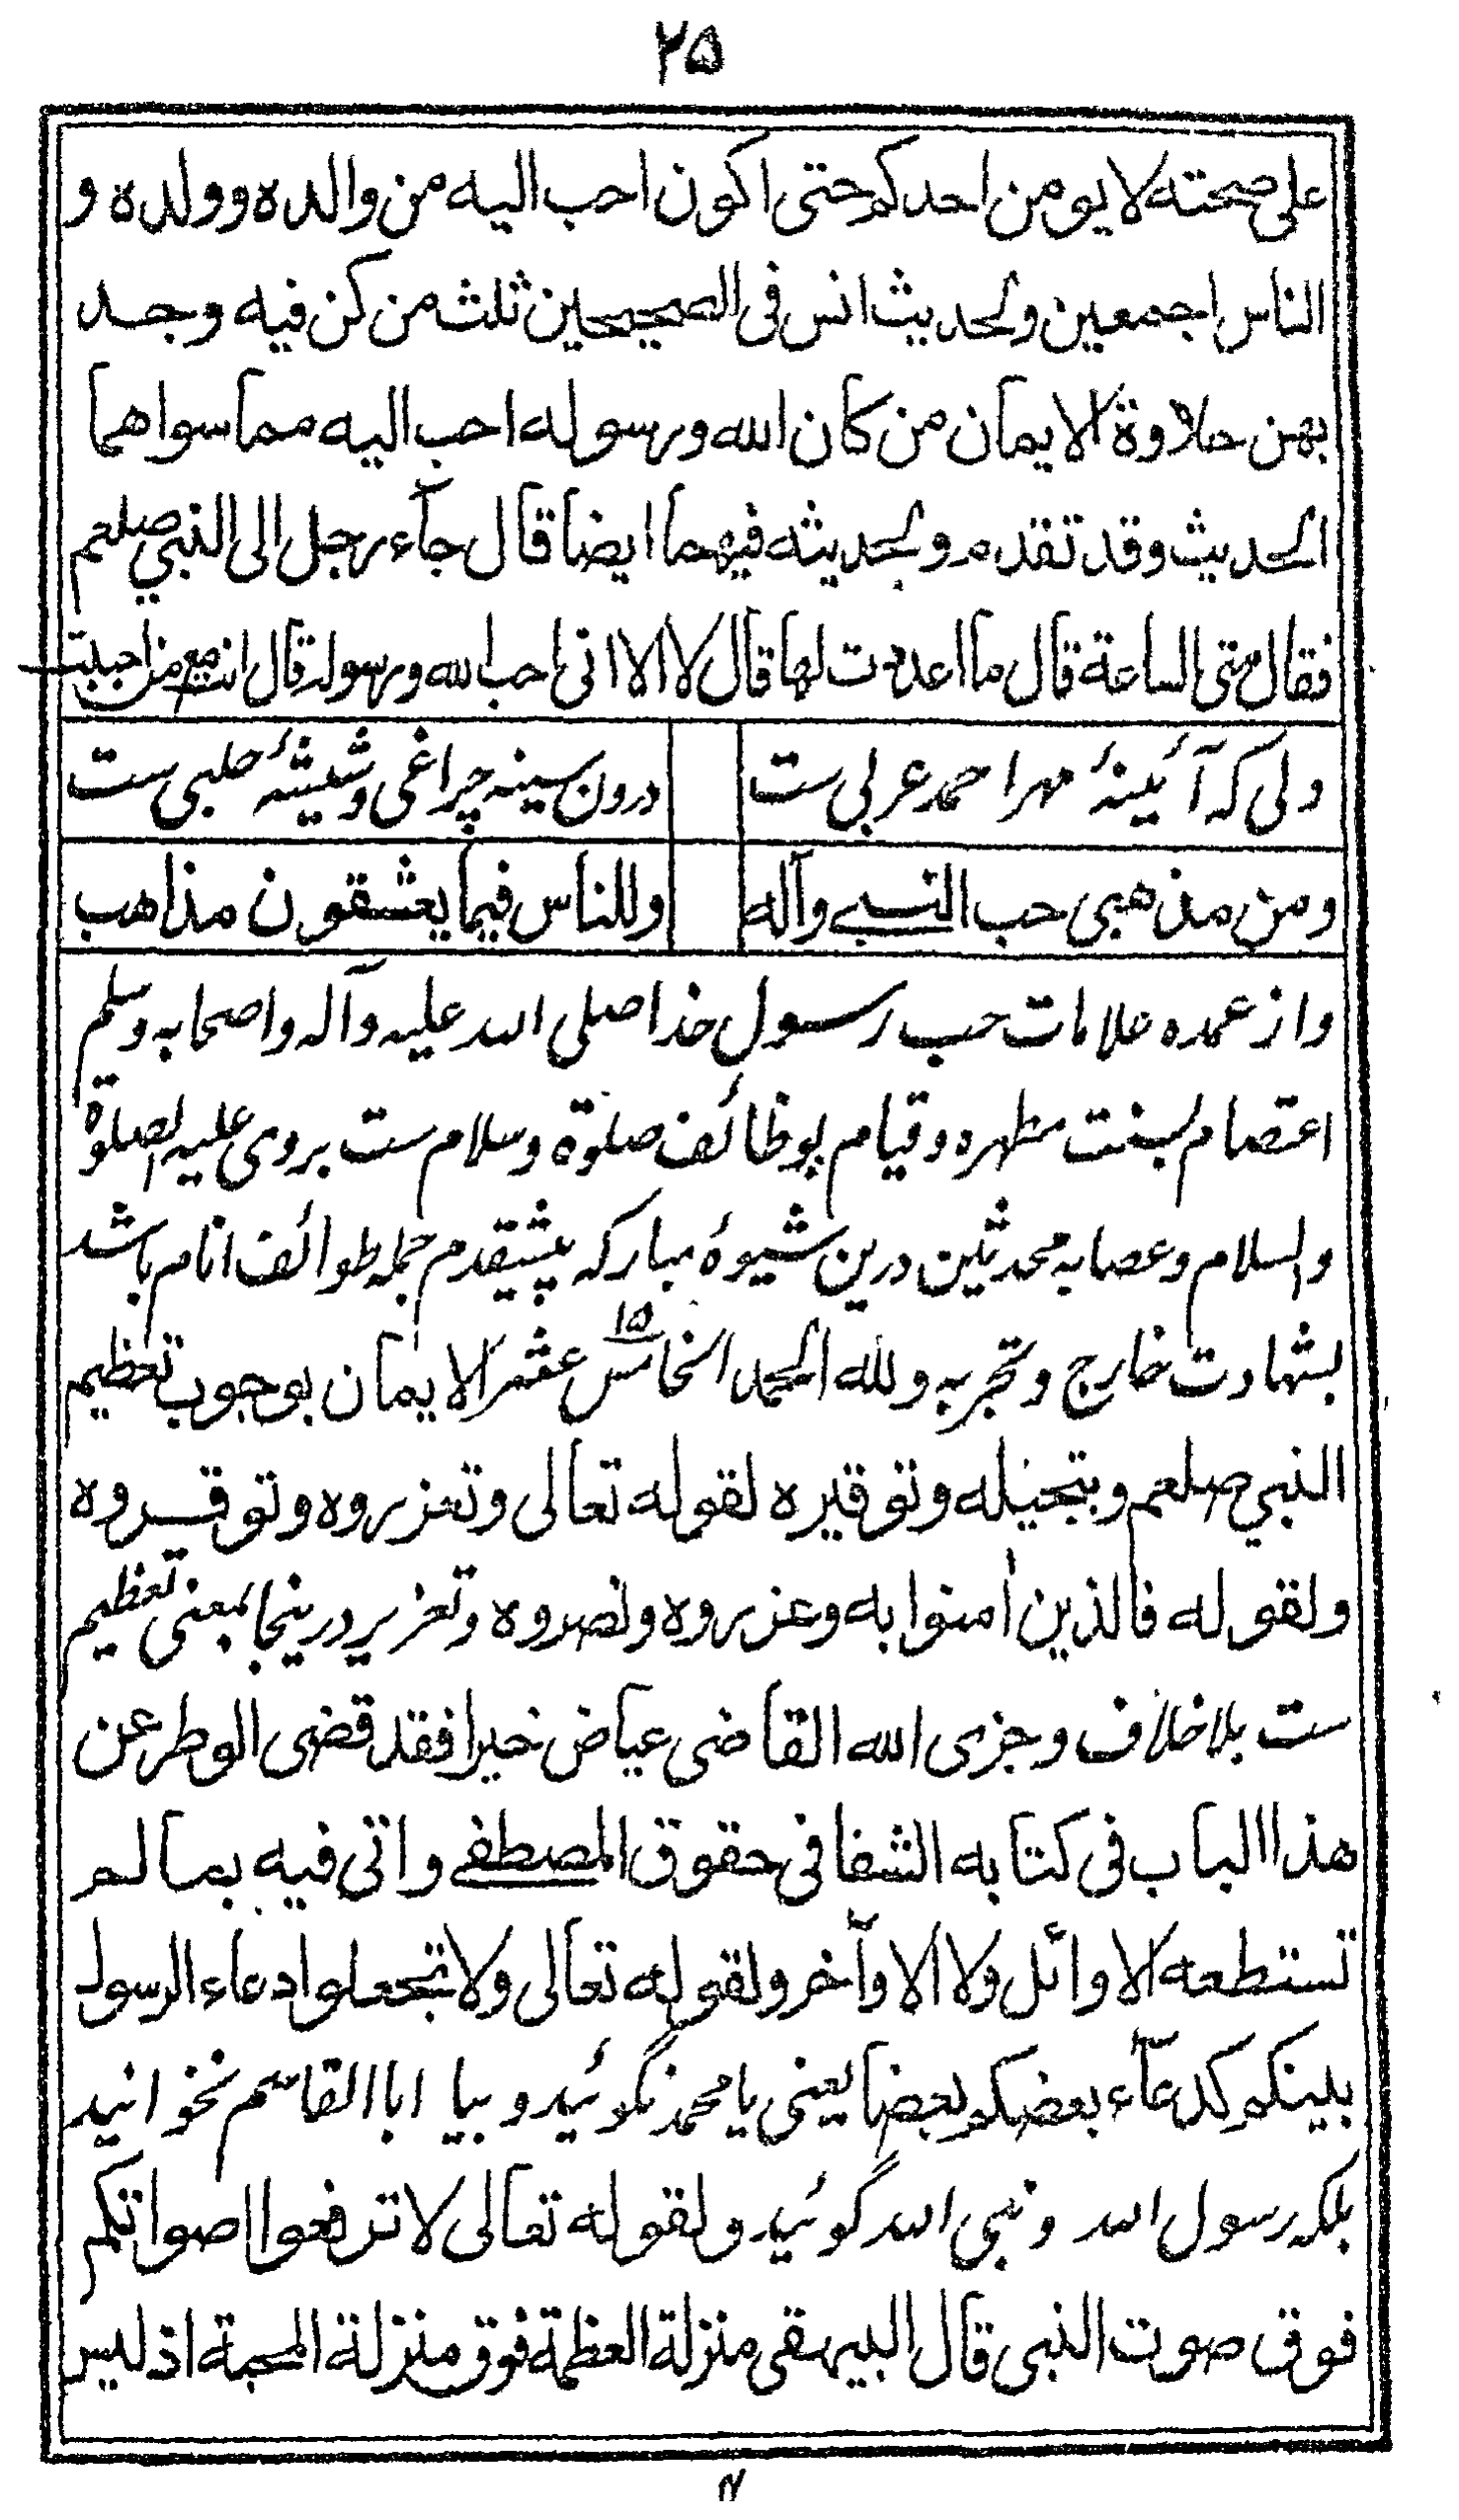 ۲۵
على صحته لا يومن احدكم حتى اكون احب اليه من والده وولده و
الناس اجمعين ولحديث انس فى الصحيحين ثلث من كن فيه وجد
بهن حلاوة الايمان من كان الله ورسوله احب اليه مما سواهما
الحديث وقد تقدم ولحديثه فيهما ايضا قال جآء رجل الى النبي صلعم
فقال متى الساعة قال ما اعددت لها قال لا الا انى احب الله ورسوله قال انت مع من احببت
ولی که آئینهٔ مهر احمد عربی ست درون سینه چراغی و شیشهٔ حلبی ست
ومن مذهبى حب النبي وآله وللناس فيما يعشقون مذاهب
و از عمده علامات حب رسول خدا صلی الله علیه و آله و اصحابه و سلم
اعتصام بسنت مطهره و قیام بوظائف صلوة و سلام ست بروی علیه الصلوة
و السلام و عصابه محدثین درین شیوهٔ مبارکه پیشقدم جمله طوائف انام باشد
بشهادت خارج و تجربه ولله الحمد الخامس ۱۵ عشر الايمان بوجوب تعظيم
النبي صلعم وبتجيله وتوقيره لقوله تعالى وتعزروه وتوقروه
ولقوله فالذين اٰمنوا به وعزروه ونصروه و تعزیر درینجا بمعنی تعظیم
ست بلا خلاف وجزى الله القاضى عياض خيرا فقد قضى الوطر عن
هذا الباب فى كتابه الشفا في حقوق المصطفے واتى فيه بما لم
تستطعه الاوائل ولا الاوآخر ولقوله تعالى ولا تجعلوا دعاء الرسول
بينكم كدعآء بعضكم بعضا یعنی یا محمد نگوئید و بیا ابا القاسم نخوانید
بلکه رسول الله و نبی الله گوئید ولقوله تعالى لا ترفعوا اصواتكم
فوق صوت النبى قال البيهقى منزلة العظمة فوق منزلة المحبة اذ ليس